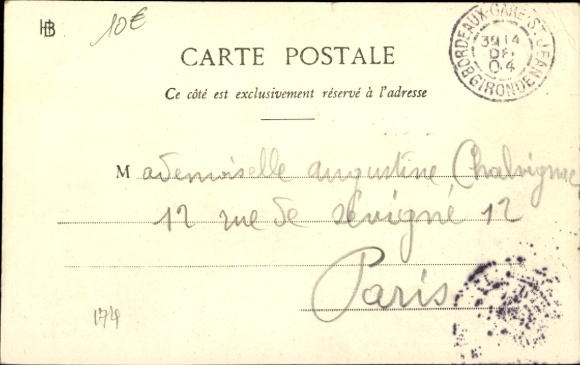 HB
10€
CARTE POSTALE
Ce côté est exclusivement réservé à l'adresse
BORDEAUX-GARE-ST-JEAN
GIRONDE
04
Mademoiselle Augustine Chalvignac
12 rue de Sévigné 12
Paris
174